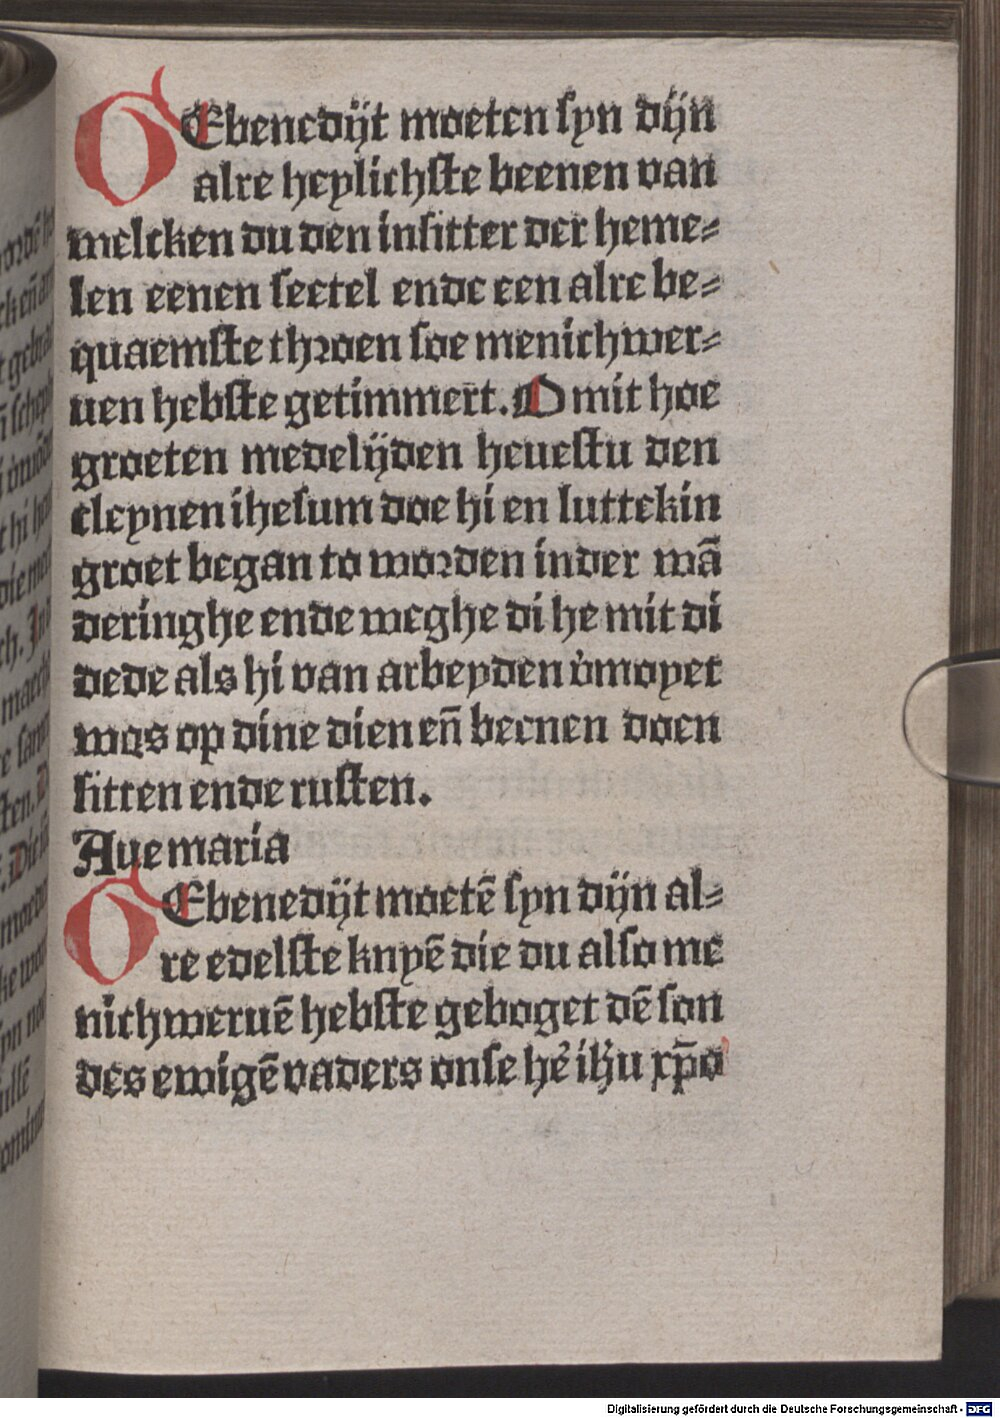 GEbenedijt moeten syn dijn
alre heylichste beenen van
welcken du den insitter der heme-
len eenen seetel ende een alre be-
quaemste throen soe menichwer-
uen hebste getimmert. O mit hoe
groeten medelijden heuestu den
cleynen ihesum doe hi en luttekin
groet began to worden inder wā
deringhe ende weghe di he mit di
dede als hi van arbeyden v̓moyet
was op dine dien en̄ beenen doen
sitten ende rusten.
Aue maria
GEbenedijt moetē syn dijn al-
re edelste knyē die du also me
nichweruē hebste geboget dē son
des ewigē vaders onse he᷑ ihu xp̄o
Digitalisierung gefördert durch die Deutsche Forschungsgemeinschaft - DFG